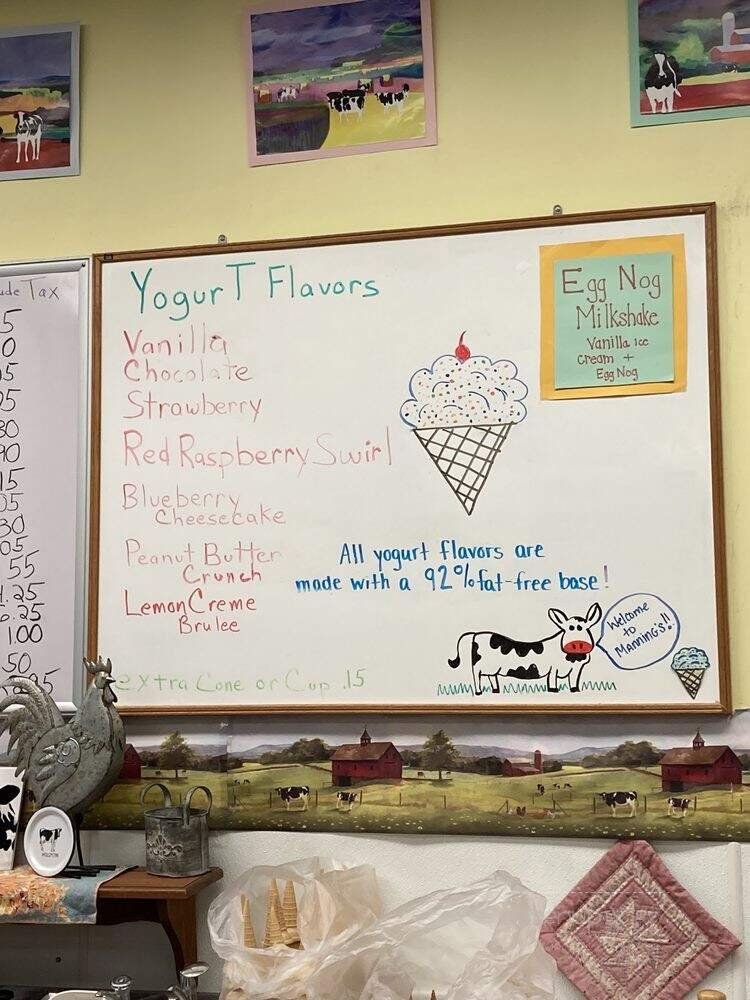 ude Tax
Yogurt Flavors
Vanilla
Chocolate
Strawberry
Red Raspberry Swirl
Blueberry
Cheesecake
Peanut Butter
Crunch
Lemon Creme
Brulee
extra Cone or Cup .15
Egg Nog
Milkshake
Vanilla ice
cream +
Egg Nog
All yogurt flavors are
made with a 92% fat-free base!
Welcome
to
Manning's!!
55
.25
.25
1.00
.50